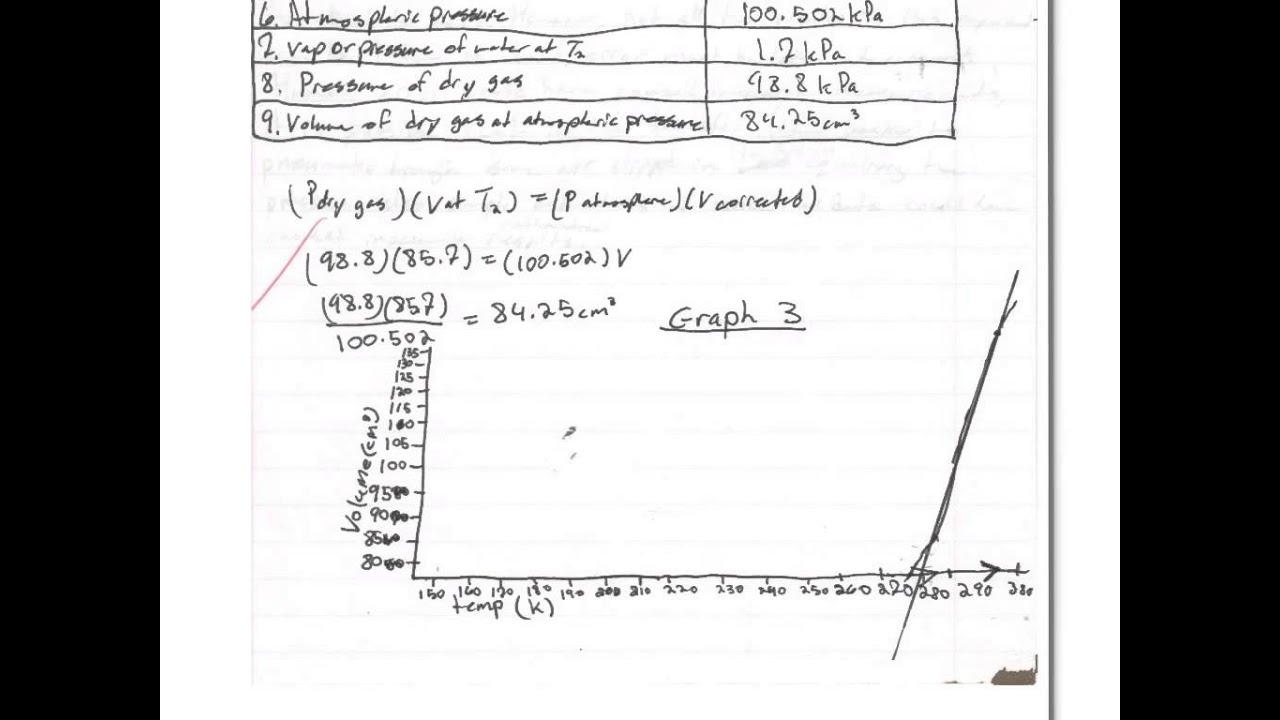 6. Atmospheric pressure 100.502 kPa
7. vapor pressure of water at T₂ 1.7 kPa
8. Pressure of dry gas 98.8 kPa
9. Volume of dry gas at atmospheric pressure 84.25 cm³
(P dry gas)(V at T₂) = (P atmosphere)(V corrected)
(98.8)(85.7) = (100.502) V
(98.8)(857)
100.502
= 84.25 cm³
Graph 3
Volume (cm³)
135
130
125
120
115
110
105
100
95
90
85
80
150 160 170 180 190 200 210 220 230 240 250 260 270 280 290 300
temp (K)